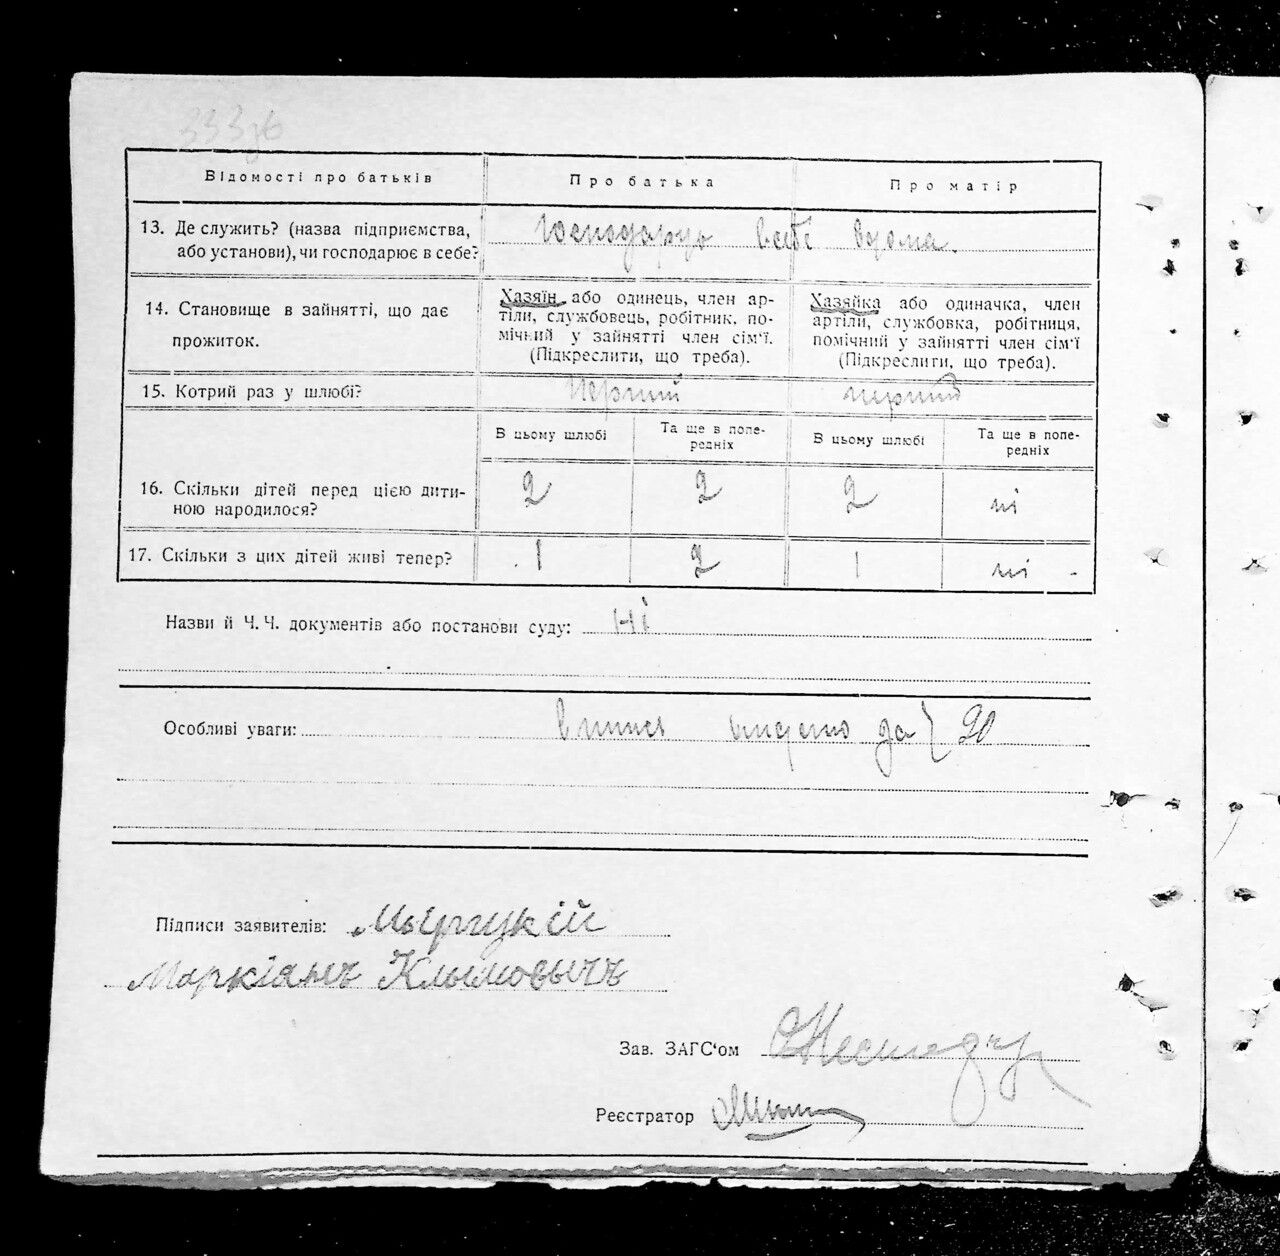 333зб
Відомості про батьків
Про батька
Про матір
13. Де служить? (назва підприємства,
або установи), чи господарює в себе?
Господарує в себе вдома.
14. Становище в зайнятті, що дає
прожиток.
Хазяїн або одинець, член ар-
тіли, службовець, робітник, по-
мічний у зайнятті член сім'ї.
(Підкреслити, що треба).
Хазяйка або одиначка, член
артіли, службовка, робітниця,
помічний у зайнятті член сім'ї
(Підкреслити, що треба).
15. Котрий раз у шлюбі?
Перший
перший
В цьому шлюбі
Та ще в попе-
редніх
В цьому шлюбі
Та ще в попе-
редніх
16. Скільки дітей перед цією дити-
ною народилося?
2
2
2
ні
17. Скільки з цих дітей живі тепер?
1
2
1
ні
Назви й Ч.Ч. документів або постанови суду: Ні
Особливі уваги: за 20
Підписи заявителів:
Маркіянъ Клымовычъ
Зав. ЗАГС'ом
Реєстратор